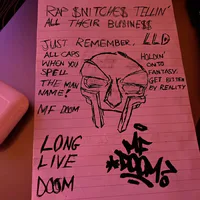 RAP $NITCHE$ TELLIN'
ALL THEIR BU$INE$$
JUST REMEMBER..
ALL CAPS
WHEN YOU
SPELL
THE MAN
NAME!
MF DOOM
LLD
HOLDIN'
ONTO
FANTASY.
GET BITTEN
BY REALITY
LONG
LIVE
DOOM
MF
DOOM